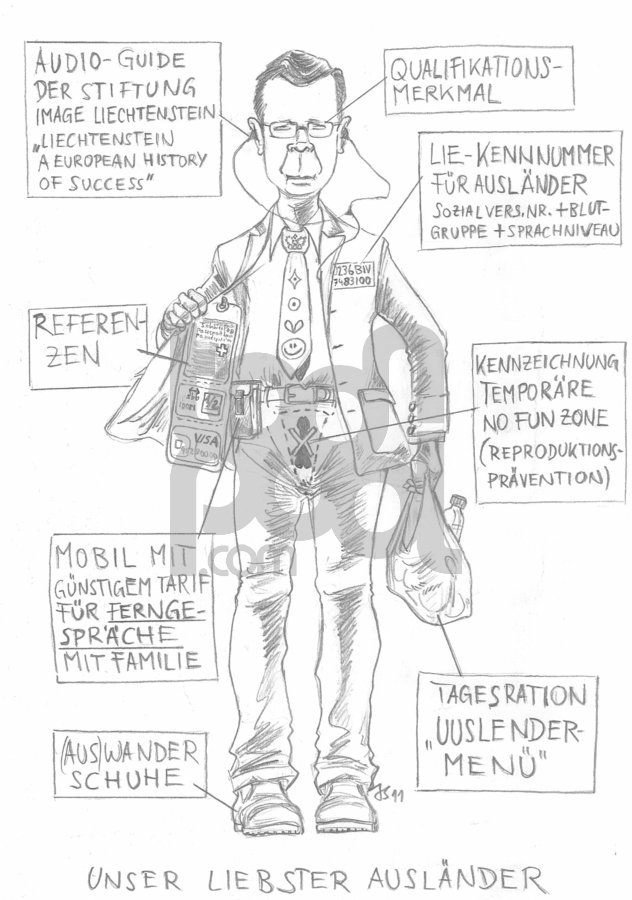 AUDIO-GUIDE
DER STIFTUNG
IMAGE LIECHTENSTEIN
„LIECHTENSTEIN
A EUROPEAN HISTORY
OF SUCCESS"
QUALIFIKATIONS-
MERKMAL
LIE-KENNNUMMER
FÜR AUSLÄNDER
SOZIALVERS.NR.+BLUT-
GRUPPE + SPRACHNIVEAU
REFEREN-
ZEN
KENNZEICHNUNG
TEMPORÄRE
NO FUN ZONE
(REPRODUKTIONS-
PRÄVENTION)
7483100
1/2
VISA
MOBIL MIT
GÜNSTIGEM TARIF
FÜR FERNGE-
SPRÄCHE
MIT FAMILIE
TAGESRATION
„UUSLENDER-
MENÜ"
(AUS)WANDER
SCHUHE
UNSER LIEBSTER AUSLÄNDER
.com